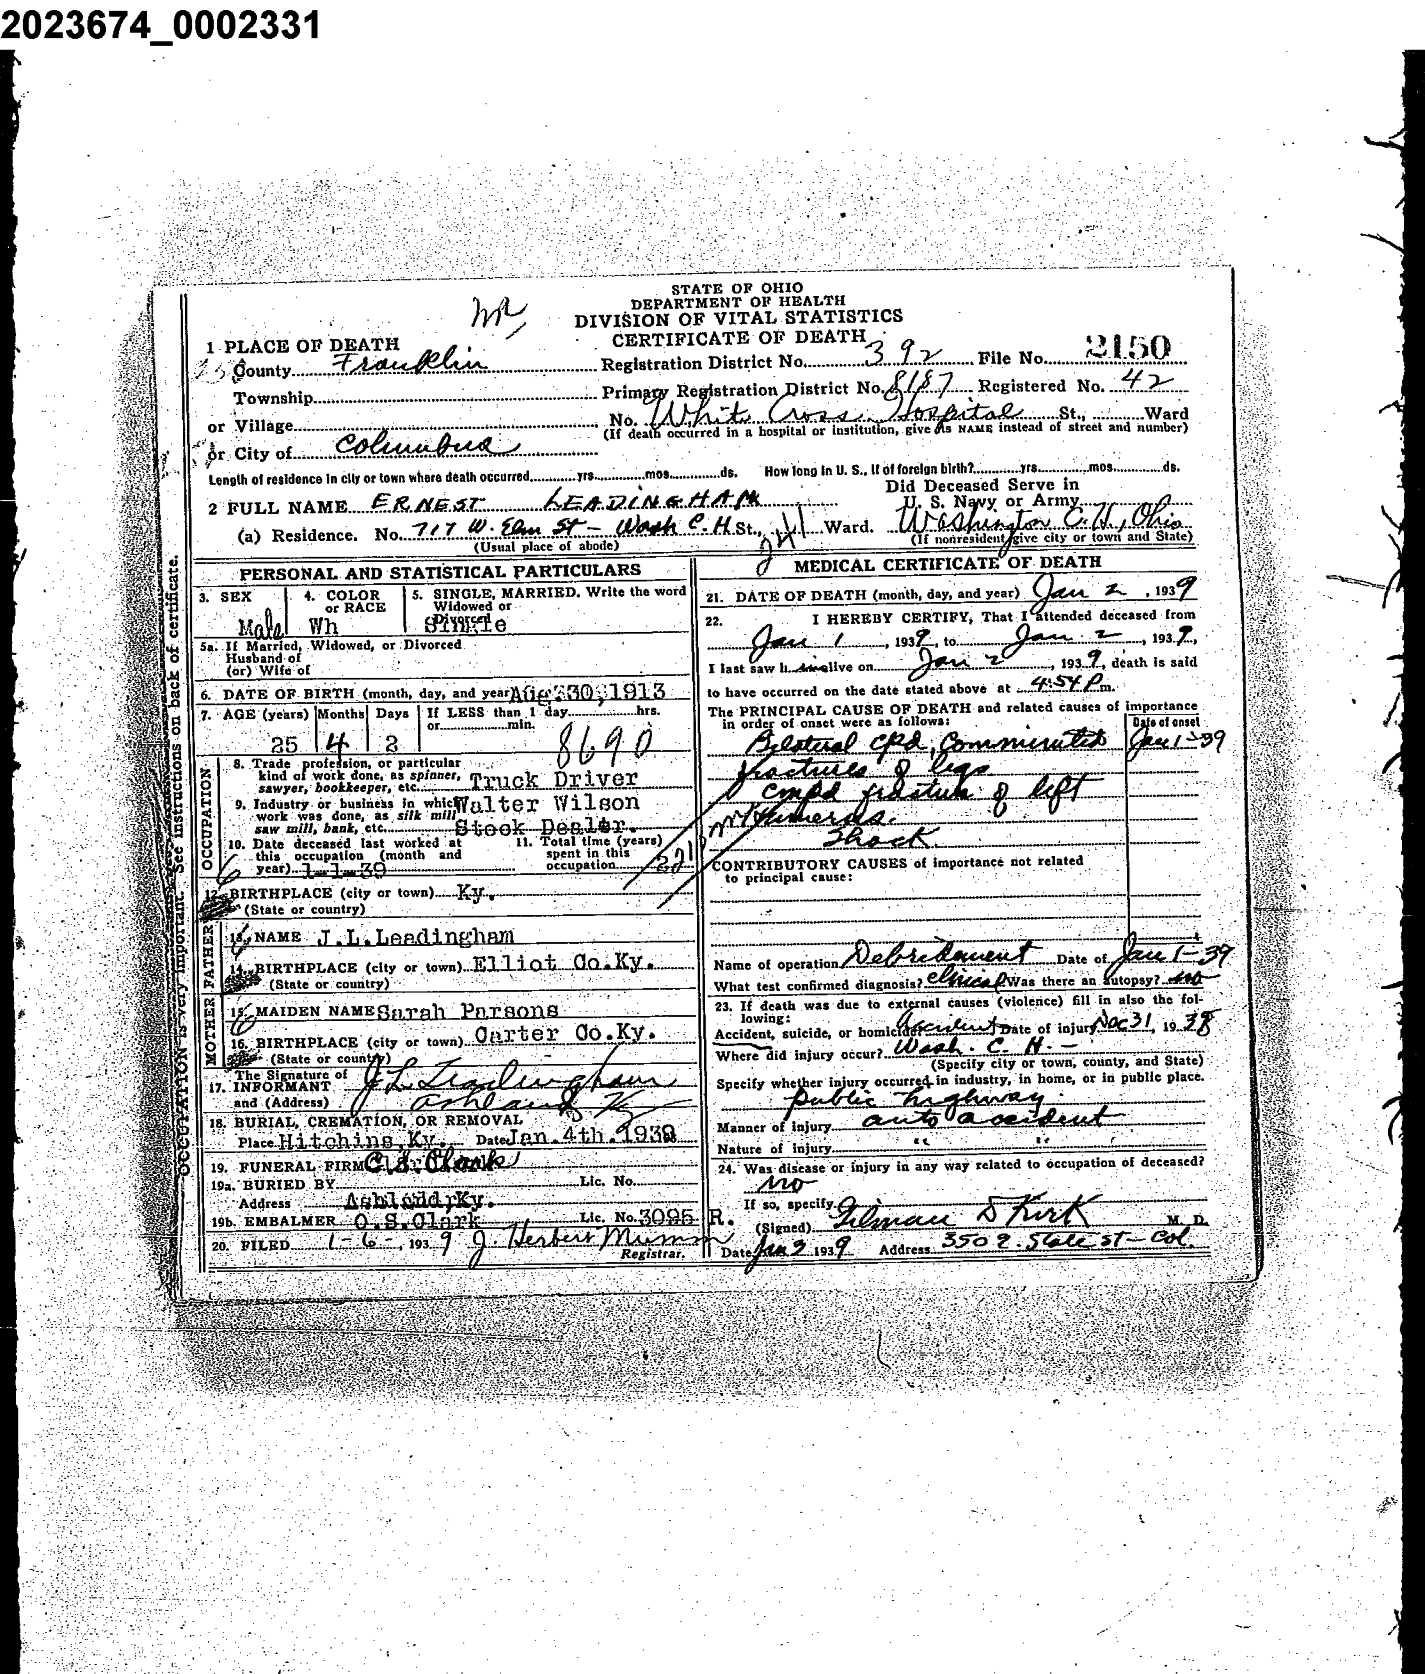 2023674_0002331
STATE OF OHIO
DEPARTMENT OF HEALTH
DIVISION OF VITAL STATISTICS
CERTIFICATE OF DEATH
1 PLACE OF DEATH
County Franklin Registration District No. 392 File No. 2150
Township Primary Registration District No. 8187 Registered No. 42
or Village No. White Cross Hospital St., Ward
(If death occurred in a hospital or institution, give its NAME instead of street and number)
or City of Columbus
Length of residence in city or town where death occurred yrs. mos. ds. How long in U. S., if of foreign birth? yrs. mos. ds.
Did Deceased Serve in
U. S. Navy or Army
2 FULL NAME ERNEST LEADINGHAM
(a) Residence. No. 717 W. Elm St - Wash C. H. St., Ward. Washington C. H., Ohio
(Usual place of abode) (If nonresident give city or town and State)
OCCUPATION is very important. See instructions on back of certificate.
PERSONAL AND STATISTICAL PARTICULARS
3. SEX 4. COLOR or RACE 5. SINGLE, MARRIED. Write the word
Widowed or
Divorced
Male Wh Single
5a. If Married, Widowed, or Divorced
Husband of
(or) Wife of
6. DATE OF BIRTH (month, day, and year) Aug 30, 1913
7. AGE (years) Months Days If LESS than 1 day hrs.
or min.
25 4 2 8690
OCCUPATION
8. Trade profession, or particular
kind of work done, as spinner,
sawyer, bookkeeper, etc. Truck Driver
9. Industry or business in which Walter Wilson
work was done, as silk mill
saw mill, bank, etc. Stock Dealer.
10. Date deceased last worked at 11. Total time (years)
this occupation (month and spent in this
year) 1-1-39 occupation
12. BIRTHPLACE (city or town) Ky.
(State or country)
FATHER
13. NAME J.L.Leadingham
14. BIRTHPLACE (city or town) Elliot Co.Ky.
(State or country)
MOTHER
15. MAIDEN NAME Sarah Parsons
16. BIRTHPLACE (city or town) Carter Co.Ky.
(State or country)
The Signature of
17. INFORMANT J L Leadingham
and (Address) Ashland Ky
18. BURIAL, CREMATION, OR REMOVAL
Place Hitchins, Ky. Date Jan. 4th. 1939
19. FUNERAL FIRM
19a. BURIED BY Lic. No.
Address Ashland, Ky.
19b. EMBALMER O.S.Clark Lic. No. 3095 R.
20. FILED 1-6-, 1939 J. Herbert Mumm
Registrar.
MEDICAL CERTIFICATE OF DEATH
21. DATE OF DEATH (month, day, and year) Jan 2, 1939
22. I HEREBY CERTIFY, That I attended deceased from
Jan 1, 1939, to Jan 2, 1939,
I last saw him alive on Jan 2, 1939, death is said
to have occurred on the date stated above at 4:54 P m.
The PRINCIPAL CAUSE OF DEATH and related causes of importance
in order of onset were as follows: Date of onset
Bilateral cpd, Comminuted Jan 1-39
fractures of legs
cmpd fracture of left
Humerus.
Shock
CONTRIBUTORY CAUSES of importance not related
to principal cause:
Name of operation Debridement Date of Jan 1-39
What test confirmed diagnosis? clinical Was there an autopsy? no
23. If death was due to external causes (violence) fill in also the following:
Accident, suicide, or homicide? Accident Date of injury Dec 31, 1938
Where did injury occur? Wash. C. H. -
(Specify city or town, county, and State)
Specify whether injury occurred in industry, in home, or in public place.
public highway
Manner of injury auto accident
Nature of injury " "
24. Was disease or injury in any way related to occupation of deceased?
no
If so, specify
(Signed) Gilman D Kirk M. D.
Date Jan 2 1939 Address 350 E. State St - Col.